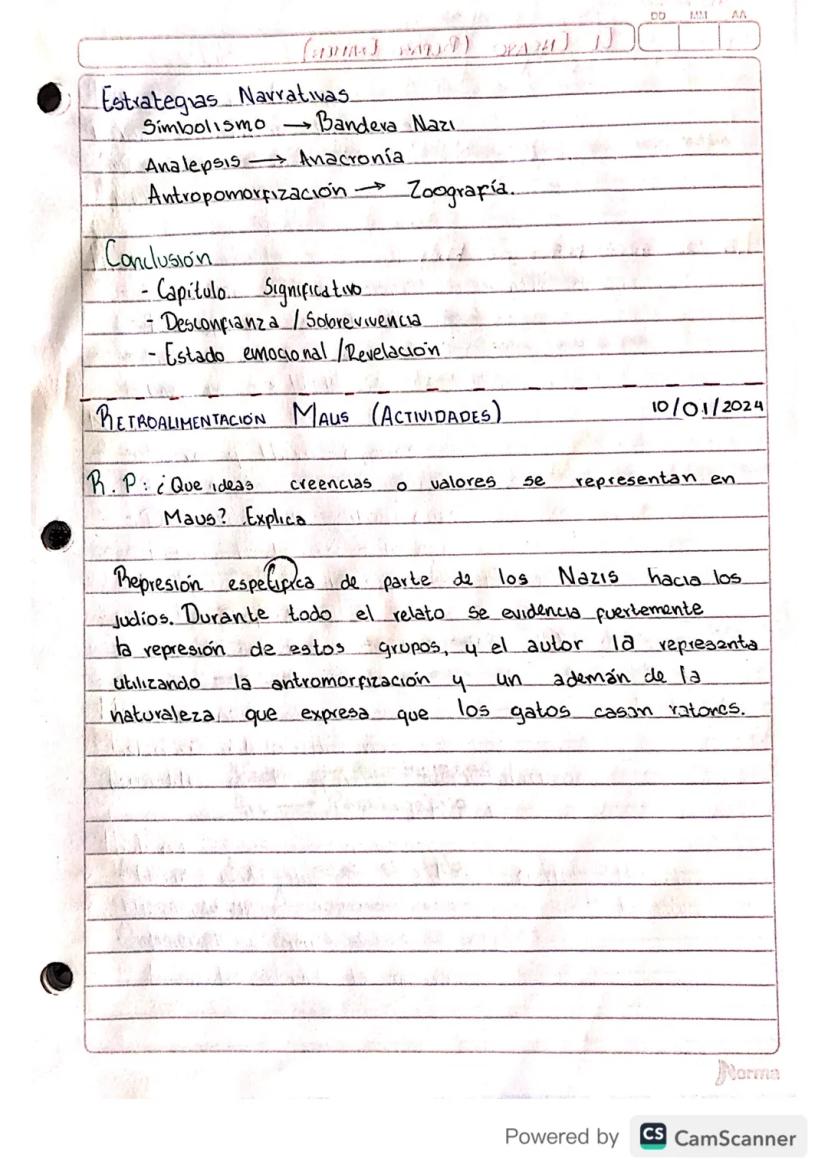 DD MM AA
Estrategias Narrativas
Simbolismo → Bandera Nazi
Analepsis → Anacronía
Antropomorfización → Zoografía.
Conclusión
- Capítulo Significativo
- Desconfianza / Sobrevivencia
- Estado emocional / Revelación
RETROALIMENTACIÓN MAUS (ACTIVIDADES) 10/01/2024
R.P: ¿Que ideas creencias o valores se representan en
Maus? Explica
Represión especifica de parte de los Nazis hacia los
judíos. Durante todo el relato se evidencia fuertemente
la represión de estos grupos, y el autor la representa
utilizando la antromorfización y un ademán de la
naturaleza que expresa que los gatos casan ratones.
Norma
Powered by CS CamScanner